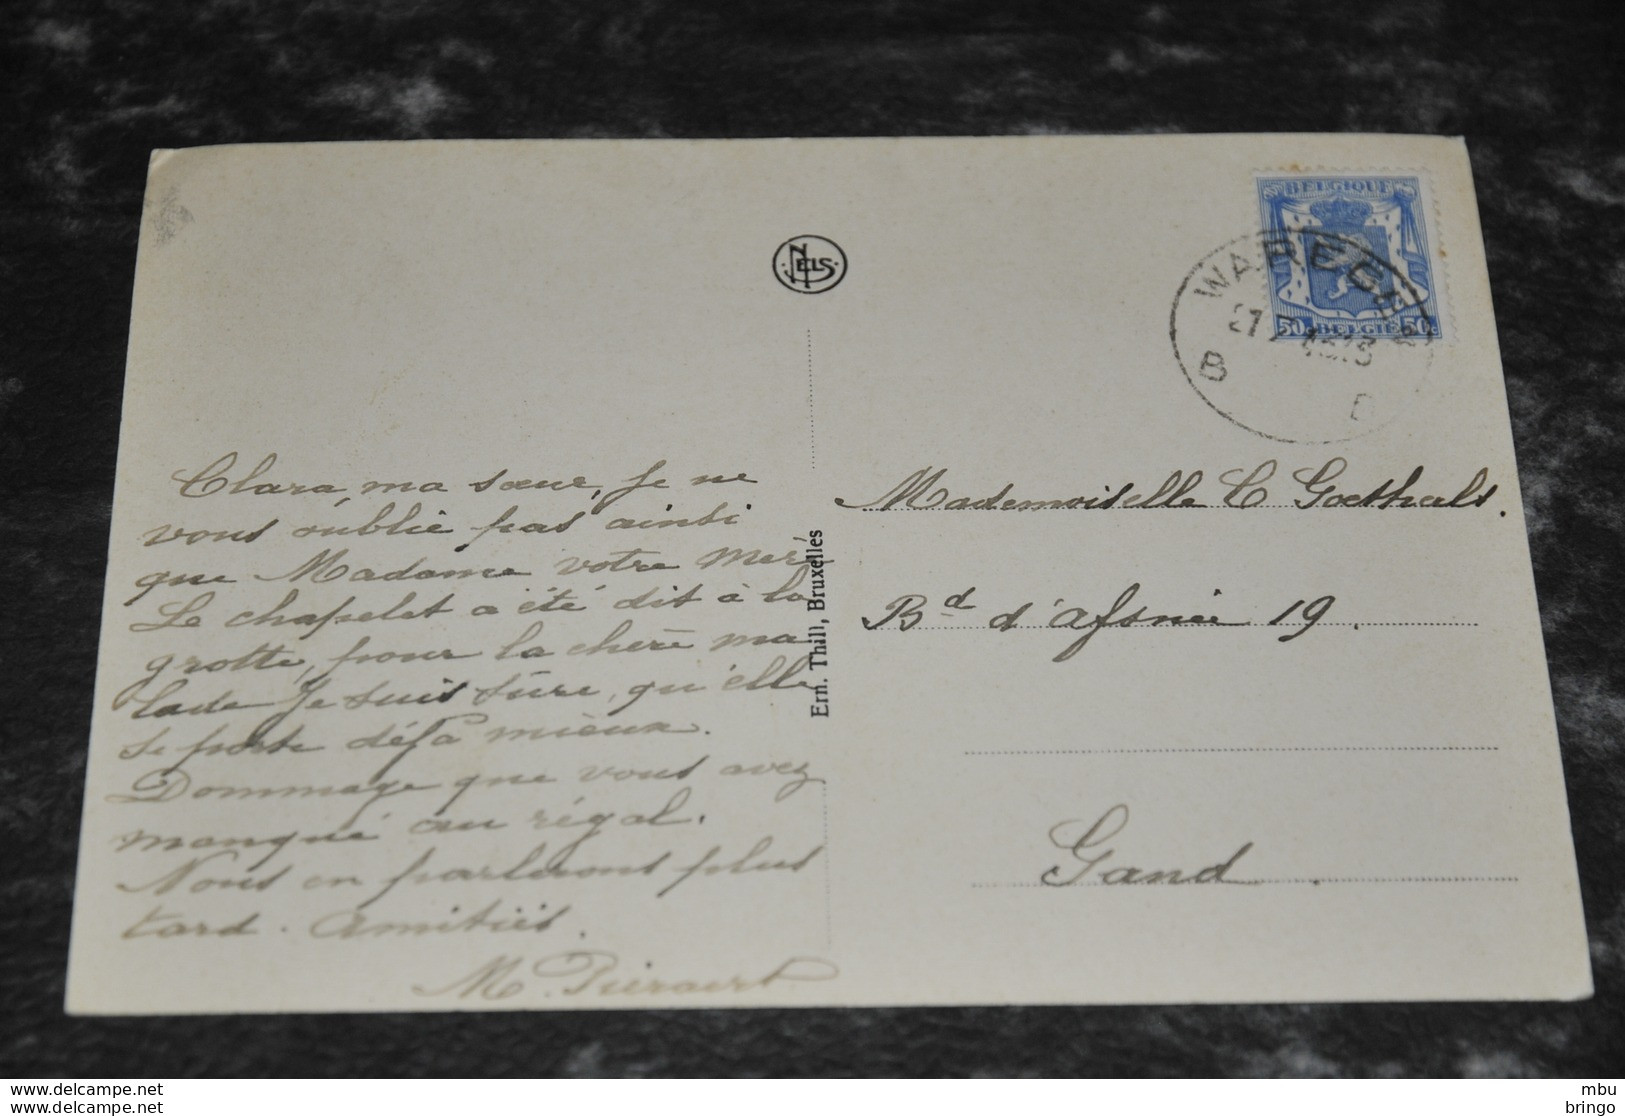 NELS
BELGIQUE
50c BELGIË 50c
WAREGEM
B
Clara, ma sœur, je ne
vous oublie pas ainsi
que Madame votre Mère
Le chapelet a été dit à la
grotte, pour la chère ma
lade je suis sûre, qu'elle
se porte déjà mieux.
Dommage que vous avez
manqué au régal.
Nous en parlerons plus
tard. Amitiés.
M. Pieraert
Ern. Thill, Bruxelles
Mademoiselle C Goethals.
Bd d'Afsneé 19.
Gand.
www.delcampe.net
www.delcampe.net
mbu
bringo